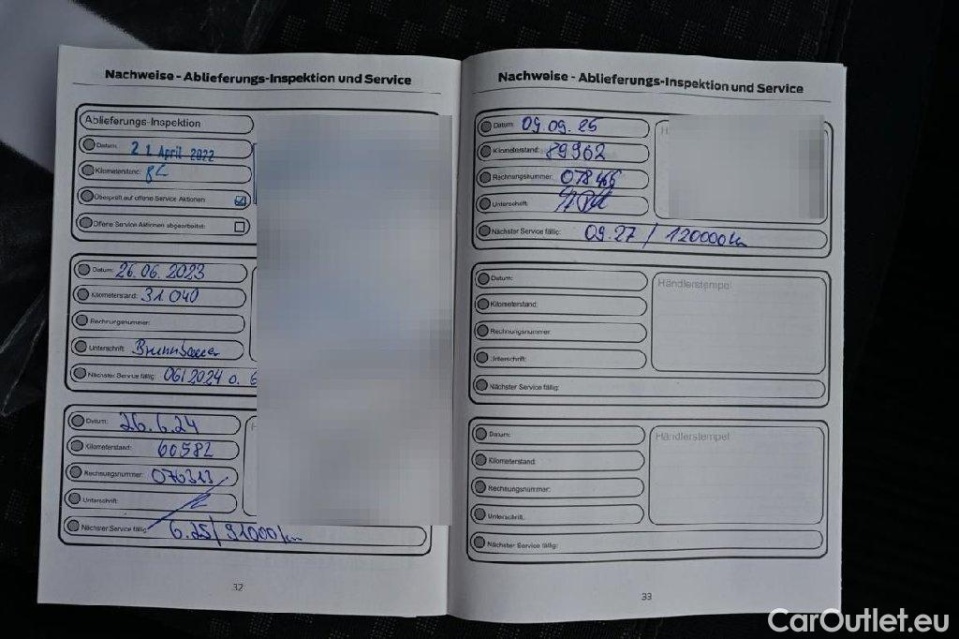 Nachweise - Ablieferungs-Inspektion und Service
Ablieferungs-Inspektion
Datum: 21. April 2022
Kilometerstand:
Überprüft auf offene Service Aktionen:
Offene Service Aktionen abgearbeitet:
Datum: 26.06.2023
Kilometerstand: 31 040
Rechnungsnummer:
Unterschrift:
Nächster Service fällig: 06/2024 o. 6
Datum: 26.6.24
Kilometerstand: 60582
Rechnungsnummer: 076313
Unterschrift:
Nächster Service fällig: 6.25/91000km
32
Nachweise - Ablieferungs-Inspektion und Service
Datum: 09.09.25
Kilometerstand: 89962
Rechnungsnummer: 078466
Unterschrift:
Nächster Service fällig: 09.27 / 120000km
Datum:
Händlerstempel
Kilometerstand:
Rechnungsnummer:
Unterschrift:
Nächster Service fällig:
Datum:
Händlerstempel
Kilometerstand:
Rechnungsnummer:
Unterschrift:
Nächster Service fällig:
33
CarOutlet.eu